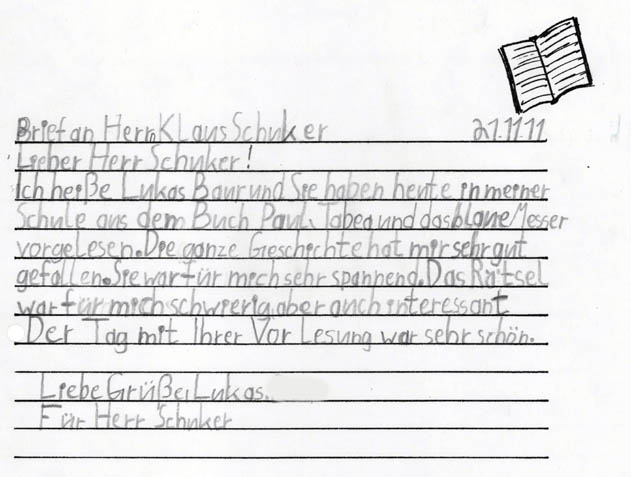 Brief an Herrn Klaus Schuker 21.11.11
Lieber Herr Schuker!
Ich heiße Lukas Baur und Sie haben heute in meiner
Schule aus dem Buch Paul, Tabea und das blaue Messer
vorgelesen. Die ganze Geschichte hat mir sehr gut
gefallen. Sie war für mich sehr spannend. Das Rätsel
war für mich schwierig aber auch interessant
Der Tag mit Ihrer Vor Lesung war sehr schön.
Liebe Grüße, Lukas.
Für Herr Schuker